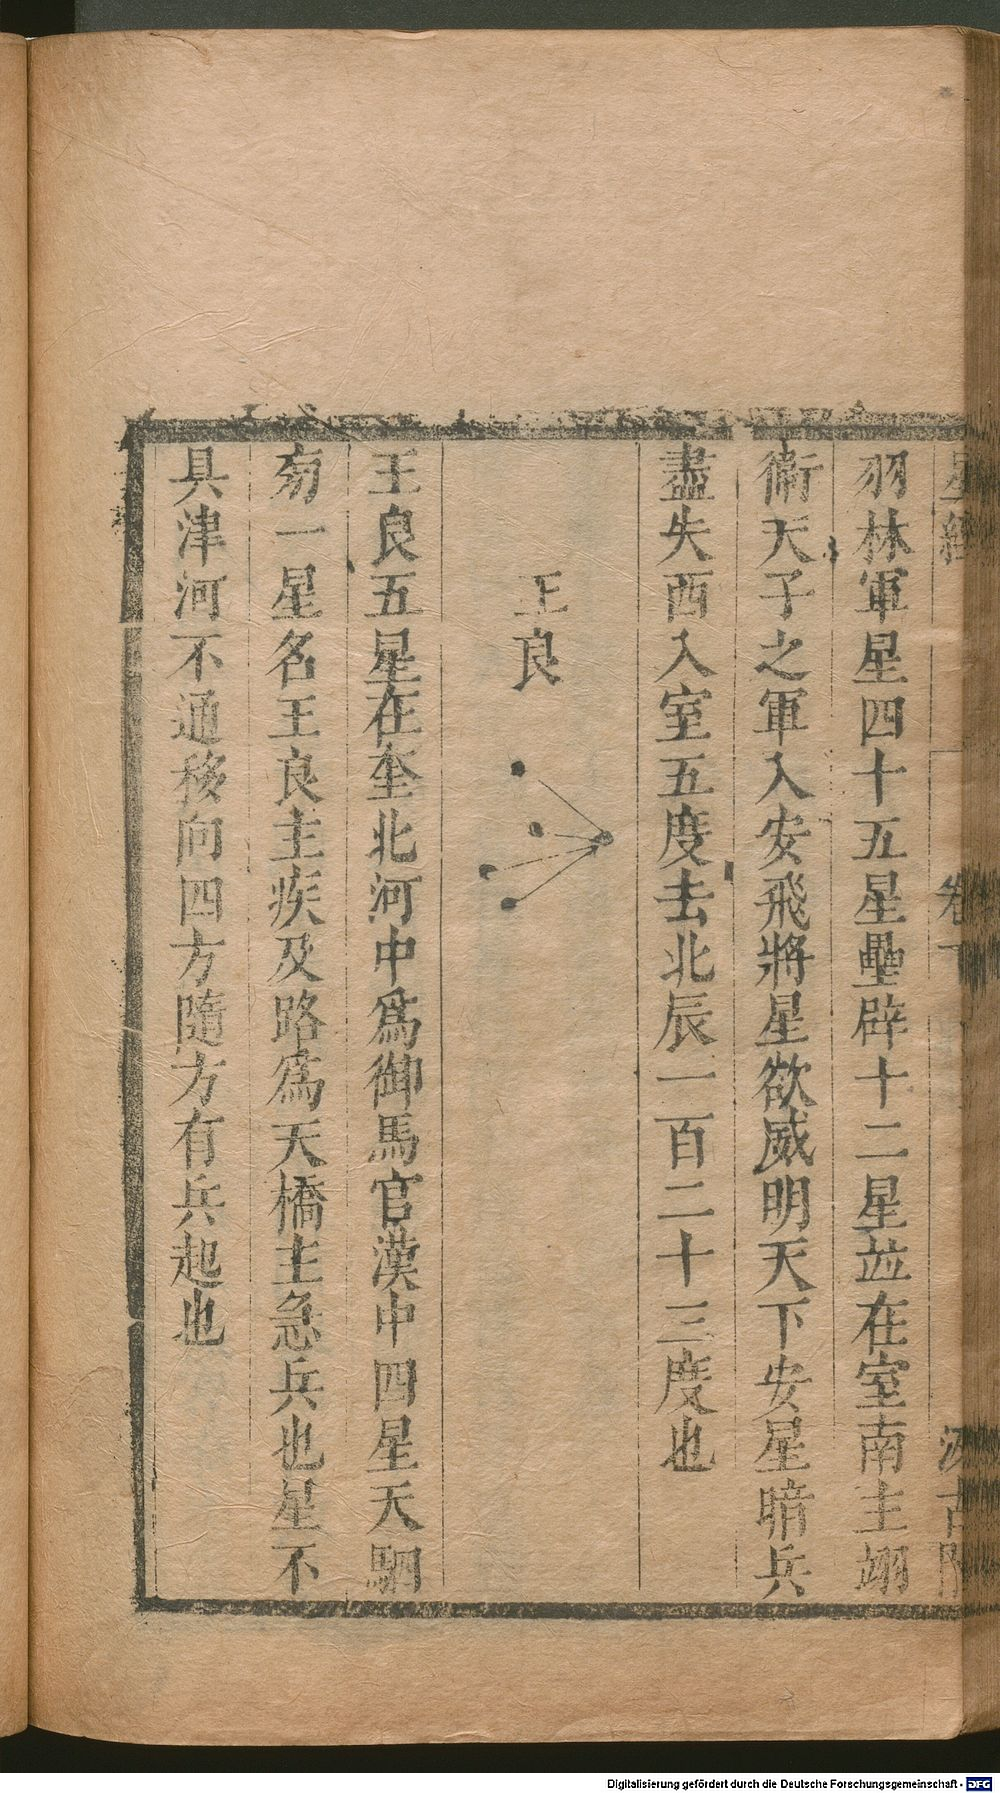 星經 卷下 汲古閣
羽林軍星四十五星壘辟十二星並在室南主翊
衛天子之軍入安飛將星欲威明天下安星暗兵
盡失西入室五度去北辰一百二十三度也
王良
王良五星在奎北河中爲御馬官漢中四星天駟
旁一星名王良主疾及路爲天橋主急兵也星不
具津河不通移向四方隨方有兵起也
Digitalisierung gefördert durch die Deutsche Forschungsgemeinschaft - DFG